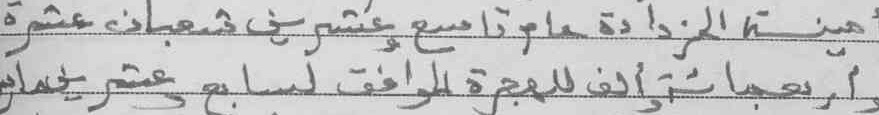 أمينة المزدادة عام تاسع وعشرين شعبان عشرة
وأربعمائة وألف للهجرة الموافق لسابع وعشرين ماي